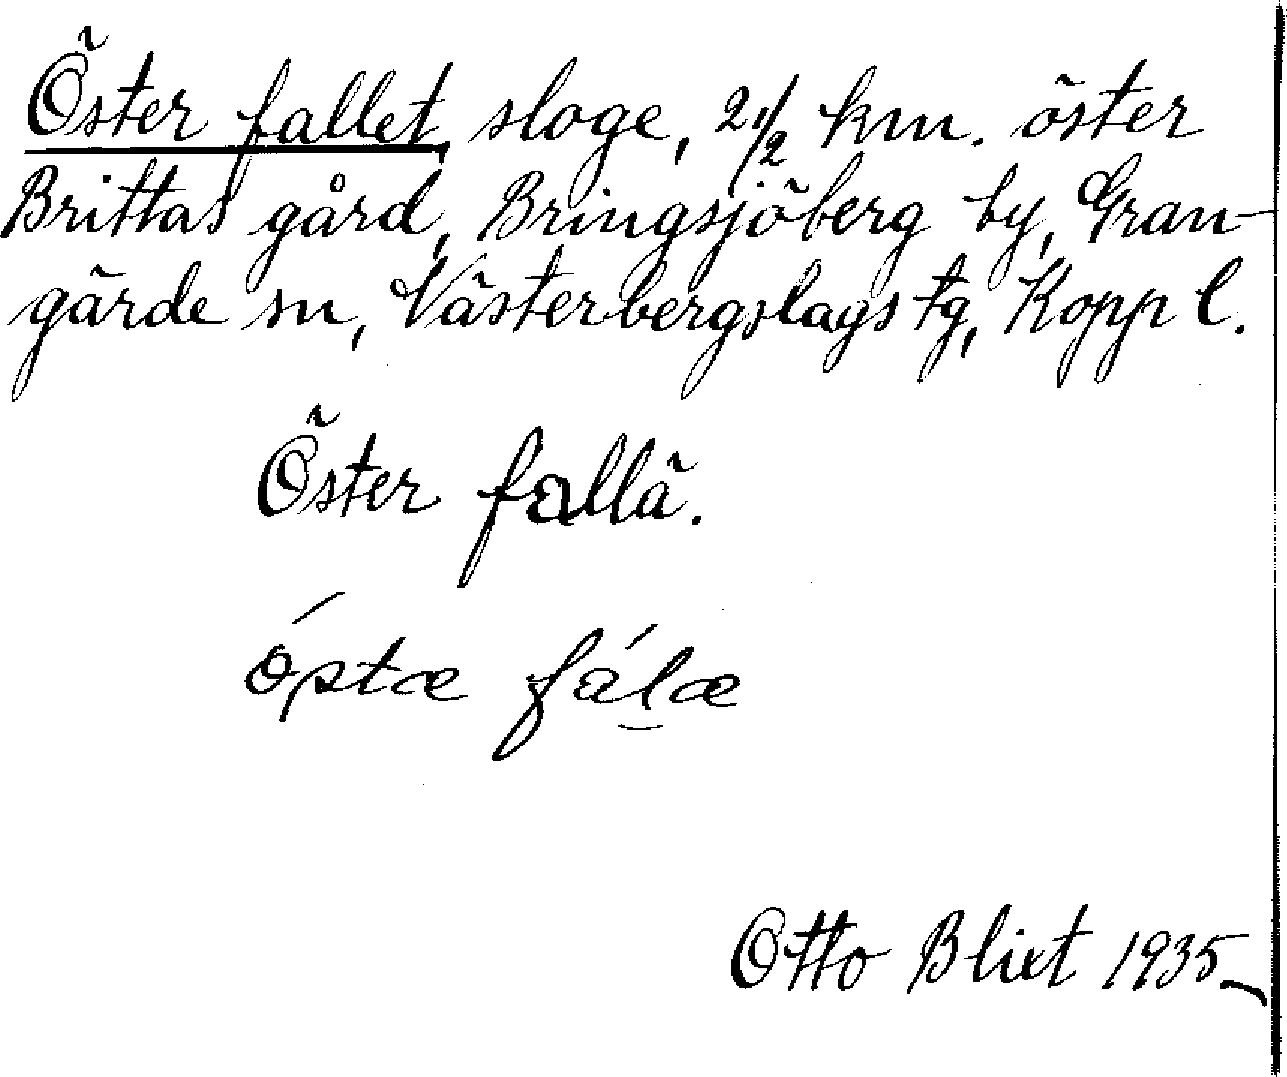 Öster fallet, sloge, 2 1/2 km. öster
Brittas gård, Bringsjöberg by, Gran-
gärde sn, Västerbergslags tg, Kopp l.
Öster fallä.
Otto Blixt 1935